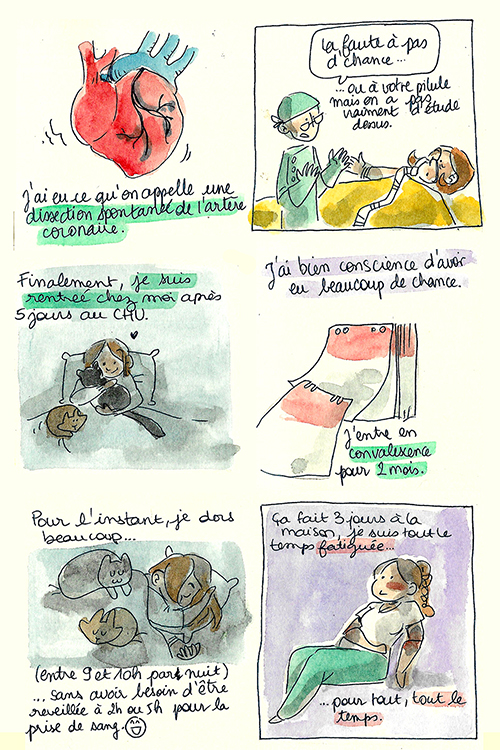 J'ai eu ce qu'on appelle une
dissection spontanée de l'artère
coronaire.
La faute à pas
d'chance...
...ou à votre pilule
mais on a pas
vraiment d'étude
dessus.
Finalement, je suis
rentrée chez moi après
5 jours au CHU.
J'ai bien conscience d'avoir
eu beaucoup de chance.
J'entre en
convalescence
pour 2 mois.
Pour l'instant, je dors
beaucoup...
(entre 9 et 10h par nuit)
... sans avoir besoin d'être
reveillée à 2h ou 5h pour la
prise de sang.
Ça fait 3 jours à la
maison, je suis tout le
temps fatiguée...
...pour tout, tout le
temps.